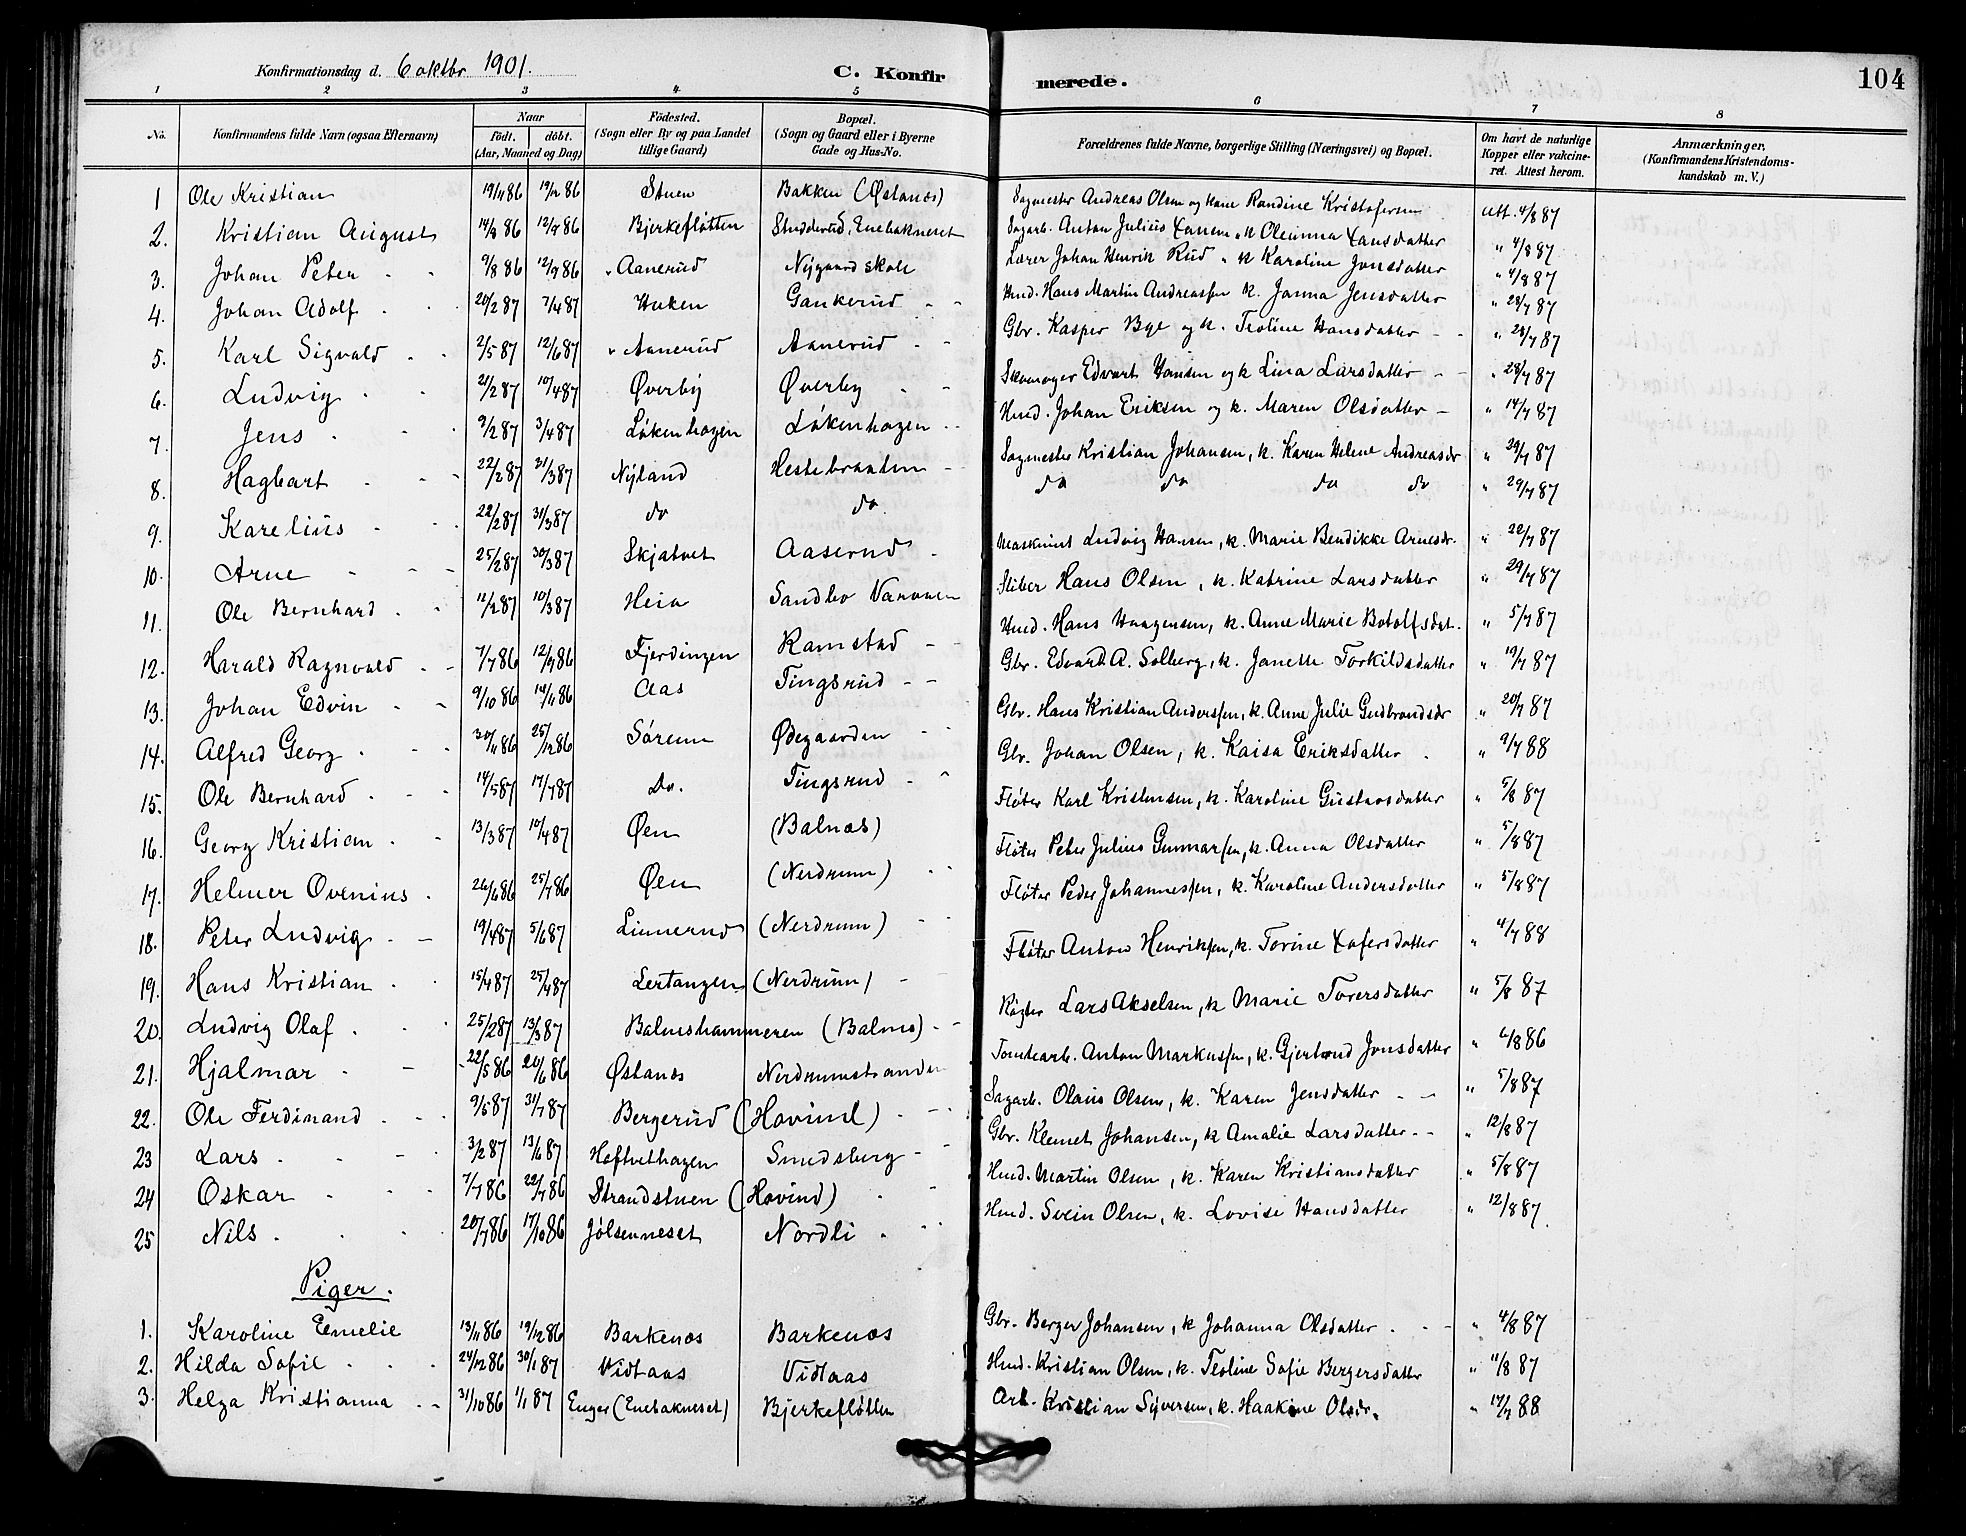 Konfirmationsdag d. 6 oktbr 1901.
C. Konfirmerede.
104
1 2 3 4 5 6 7 8
No.
Konfirmandens fulde Navn (ogsaa Efternavn)
Naar
født. døbt.
(Aar, Maaned og Dag)
Fødested.
(Sogn eller By og paa Landet
tillige Gaard)
Bopæl.
(Sogn og Gaard eller i Byerne
Gade og Hus-No.
Forældrenes fulde Navne, borgerlige Stilling (Næringsvei) og Bopæl.
Om havt de naturlige
Kopper eller vakcine-
ret. Attest herom.
Anmærkninger.
(Konfirmandens Kristendoms-
kundskab m. V.)
1 Ole Kristian 19/1 86 19/2 86 Stuen Bakken (Østanæs) Sagmester Andreas Olsen og Hane Randine Kristofersen Att. 4/8 87
2. Kristian August 14/8 86 12/9 86 Bjerkefløtten Studderud, Enebakneset Sagarb. Anton Julius Xansen " k Oleanna Xansdatter " 4/8 87
3. Johan Peter 9/8 86 12/9 86 " Aanerud Nygaard skole Lærer Johan Henrik Rud " k Karoline Jonsdatter " 4/8 87
4. Johan Adolf 20/2 87 7/4 87 Huken Gankerud Hmd. Hans Martin Andreassen k. Janna Jensdatter " 28/7 87
5. Karl Sigvald 2/5 87 12/6 87 " Aanerud Aanerud Gbr. Kasper Bye og k. Teoline Hansdatter " 28/7 87
6. Ludvig 21/2 87 10/4 87 Øverby Øverby Skomager Edvart Hansen og k Lina Larsdatter " 28/7 87
7. Jens 9/2 87 3/4 87 Løkenhagen Løkenhagen Hmd. Johan Eriksen og k. Maren Olsdatter " 14/7 87
8. Hagbart 22/2 87 31/3 87 Nyland Hestebraaten Sagmester Kristian Johansen, k. Karen Helene Andreasdr " 29/7 87
9. Karelius 22/2 87 31/3 87 do do do do do do " 29/7 87
10. Arne 25/2 87 30/3 87 Skjatvet Aaserud Maskinist Ludvig Hansen, k. Marie Bendikke Arnesdr. " 22/7 87
11. Ole Bernhard 12/2 87 10/3 87 Heia Sandbo Sliber Hans Olsen, k. Katrine Larsdatter " 29/7 87
12. Harald Ragnvald 7/7 86 12/9 86 Fjerdingen Ramstad Hmd. Hans Haagensen, k. Anne Marie Botolfsdat. " 5/7 87
13. Johan Edvin 9/10 86 14/11 86 Aas Tingsrud Gbr. Edvard A. Solberg, k. Janette Torkildsdatter " 19/7 87
14. Alfred Georg 30/11 86 25/12 86 Sørenn Ødegaarden Gbr. Hans Kristian Anderssen, k. Anne Julie Gudbrandsdr " 20/7 87
15. Ole Bernhard 14/5 87 17/7 87 Do. Tingsrud Gbr. Johan Olsen, k. Kaisa Eriksdatter " 9/7 88
16. Georg Kristian 13/3 87 10/4 87 Øen (Balnæs) Fløter Karl Kristensen, k. Karoline Gustavsdatter " 5/8 87
17. Helmer Ovenius 26/6 86 25/7 86 Øen (Nerdrum) Fløter Peter Julius Gunnarsen, k. Anna Olsdatter " 5/8 87
18. Peter Ludvig 19/4 87 5/6 87 Linnerud (Nerdrum) Fløter Peder Johannessen, k. Karoline Andersdatter " 5/8 87
19. Hans Kristian 15/4 87 25/4 87 Lertangen (Nerdrum) Fløter Anton Henriksen, k. Torine Xofersdatter " 4/7 88
20. Ludvig Olaf 25/2 87 13/3 87 Balneshammeren (Balnes) Røgter Lars Akselsen, k Marie Toversdatter " 5/8 87
21. Hjalmar 22/5 86 20/6 86 Østanæs Nerdrumstranden Tomtearb. Anton Markussen, k. Gjertrud Jonsdatter " 6/8 86
22. Ole Ferdinand 9/5 87 31/7 87 Bergerud (Hovind) Sagarb. Olaus Olsen, k. Karen Jensdatter " 5/8 87
23 Lars 3/2 87 13/6 87 Høftvethagen Smedsberg Gbr. Klemet Johansen, k Amalie Larsdatter " 12/8 87
24 Oskar 7/7 86 22/7 86 Strandstuen (Hovind) Hmd. Martin Olsen, k. Karen Kristiansdatter " 5/8 87
25 Nils 20/7 86 17/10 86 Jølsenneset Nordli Hmd. Svein Olsen, k. Lovise Hansdatter " 12/8 87
Piger.
1. Karoline Emelie 13/11 86 19/12 86 Barkenæs Barkenæs Gbr. Berger Johansen, k Johanna Olsdatter " 4/8 87
2. Hilda Sofie 24/12 86 30/1 87 Vidtaas Vidtaas Hmd. Kristian Olsen, k. Teoline Sofie Bergersdatter " 11/8 87
3. Helga Kristianna 31/10 86 1/1 87 Enger (Enebakneset) Bjerkefløtten Arb. Kristian Syversen, k. Haakine Olsdr. " 17/7 88